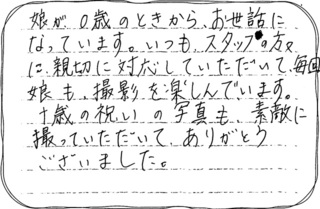 娘が0歳のときから、お世話に
なっています。いつも、スタッフの方々
に、親切に対応していただいて、毎回
娘も、撮影を楽しんでいます。
十歳の祝いの写真も、素敵に
撮っていただいて、ありがとう
ございました。